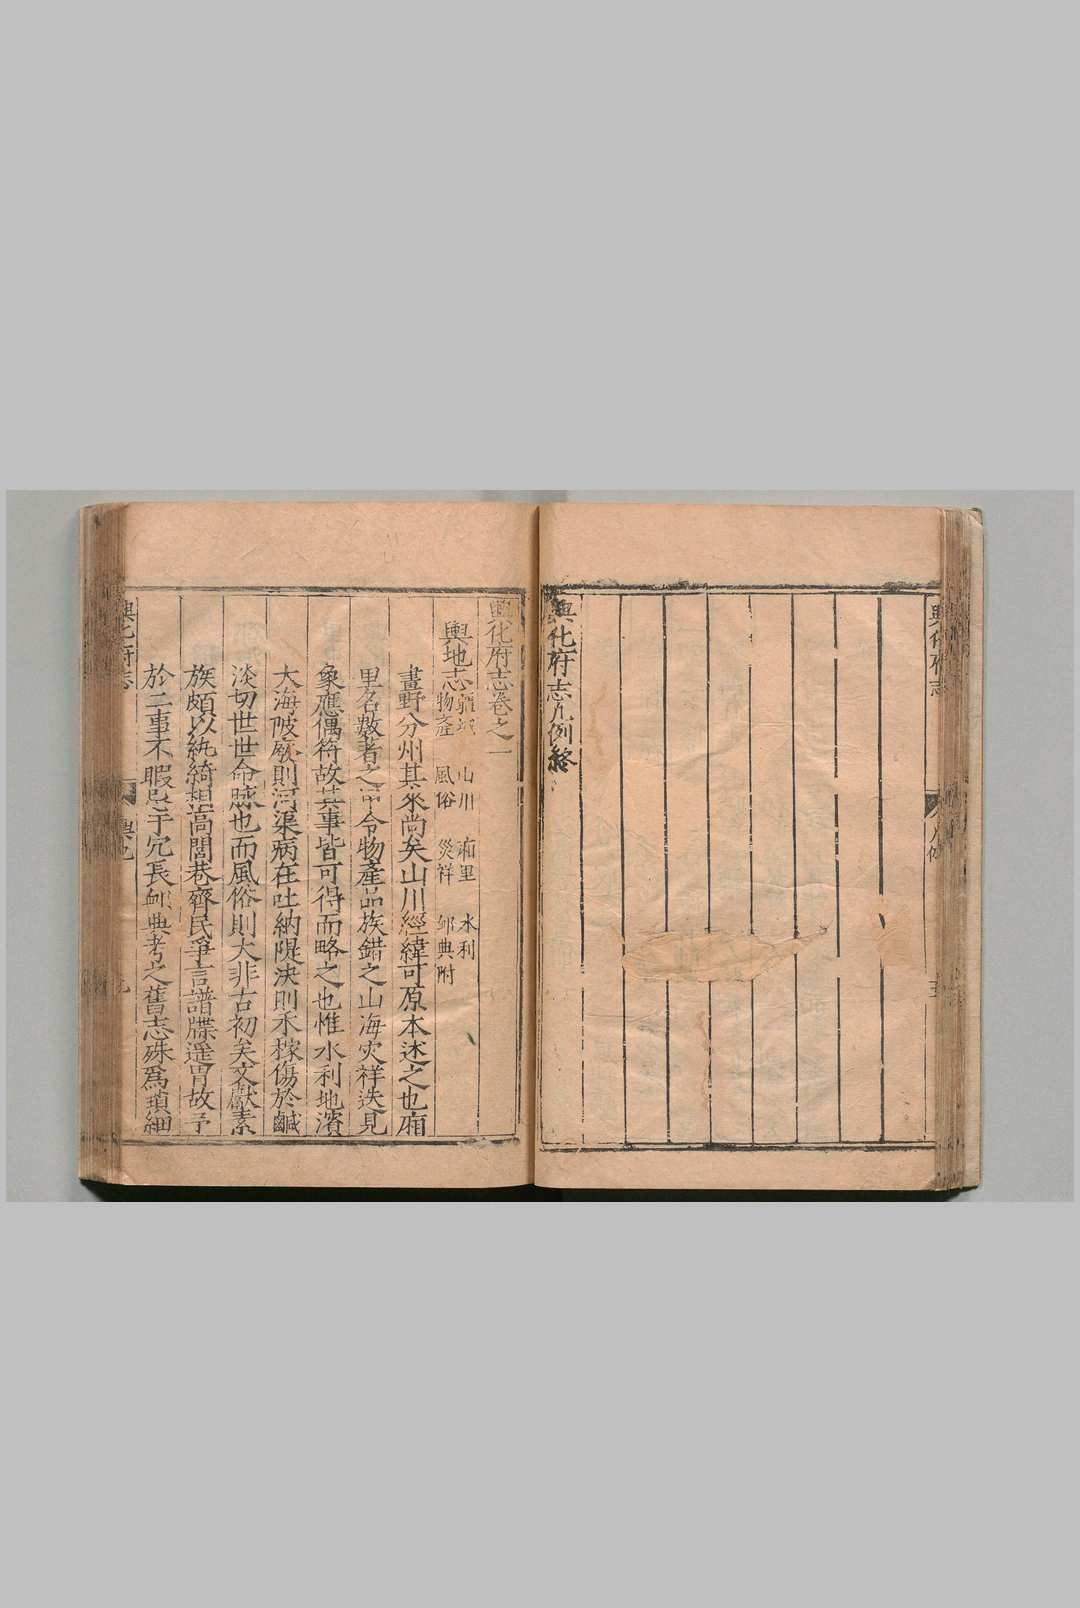 興化府志
凡例
興化府志凡例終
興化府志卷之一
輿地志 疆域 山川 廂里 水利
物產 風俗 災祥 邮典附
畫野分州其來尚矣山川經緯可原本述之也廂
里名數著之令物產品族錯之山海災祥迭見
象應偶符故其事皆可得而略之也惟水利地濱
大海陂廢則河渠病在吐納隄決則禾稼傷於鹹
淡切世世命脉也而風俗則大非古初矣文獻素
族頗以紈綺想高閭巷齊民爭言譜牒遥胄故予
於二事不暇于冗長卹典考之舊志殊為瑣細
興化府志
輿地